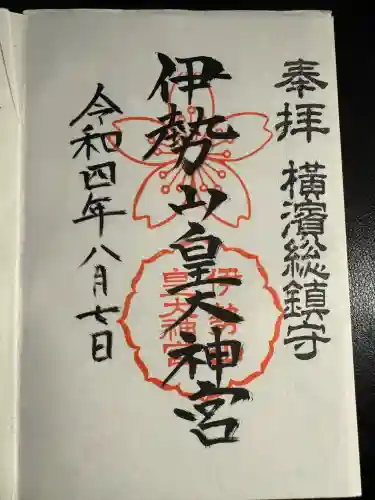 奉拝 横濱総鎮守
伊勢山皇大神宮
令和四年八月七日
伊勢
皇大神宮